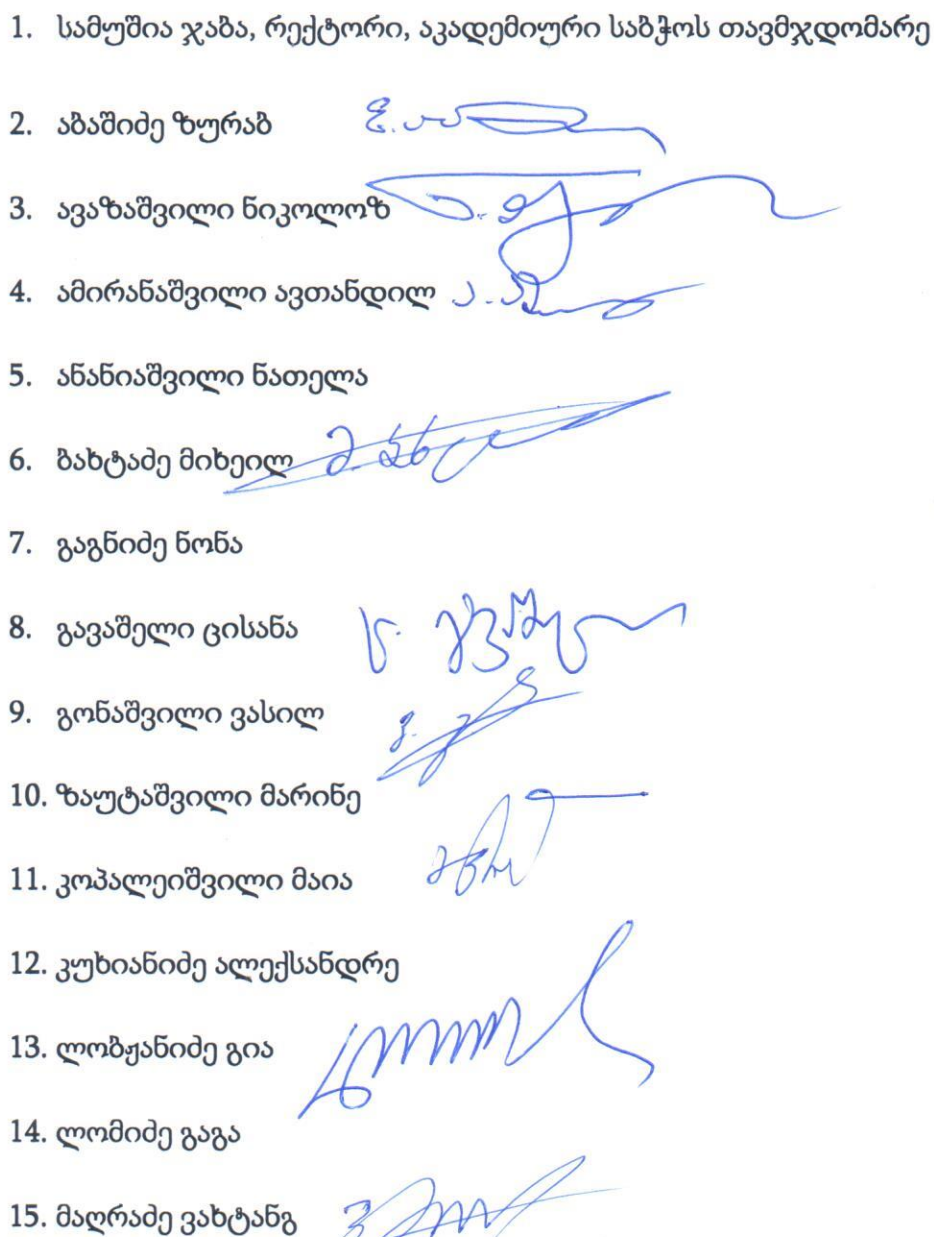 1. სამუშია ჯაბა, რექტორი, აკადემიური საბჭოს თავმჯდომარე
2. აბაშიძე ზურაბ
3. ავაზაშვილი ნიკოლოზ
4. ამირანაშვილი ავთანდილ
5. ანანიაშვილი ნათელა
6. ბახტაძე მიხეილ
7. გაგნიძე ნონა
8. გავაშელი ცისანა
9. გონაშვილი ვასილ
10. ზაუტაშვილი მარინე
11. კოპალეიშვილი მაია
12. კუხიანიძე ალექსანდრე
13. ლობჟანიძე გია
14. ლომიძე გაგა
15. მაღრაძე ვახტანგ